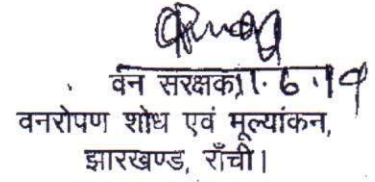 वन सरक्षक, 11.6.19
वनरोपण शोध एवं मूल्यांकन,
झारखण्ड, राँची।